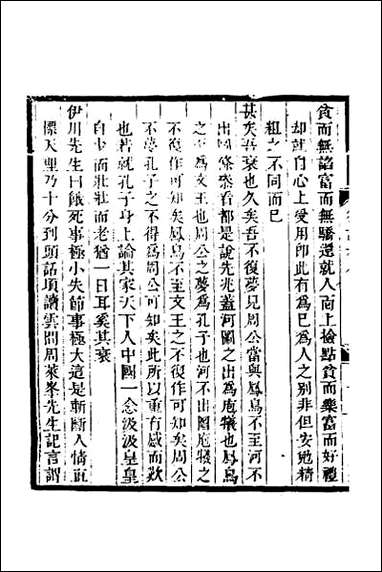 貧而無諂富而無驕還就人面上撿點貧而樂富而好禮
却就自心上受用卽此有爲巳爲人之別非但安勉精
粗之不同而巳
甚矣吾衰也久矣吾不復夢見周公當與鳳鳥不至河不
出圖條叅看都是說先兆蓋河圖之出爲庖犧也鳳鳥
之至爲文王也周公之夢爲孔子也河不出圖庖犧之
不復作可知矣鳳鳥不至文王之不復作可知矣周公
不夢孔子之不得爲周公可知矣此所以重有感而歎
也若就孔子身上論其家天下人中國一念汲汲皇皇
自少而壯壯而老猶一日耳奚其衰
伊川先生曰餓死事極小失節事極大這是斬斷人情直
標天理乃十分到頭話頃讀雲間周萊峯先生記言謂